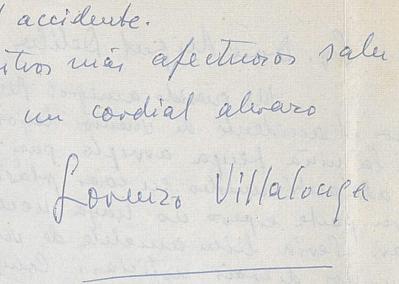 accidente.
más afectuosos salu
un cordial abrazo
Lorenzo Villalonga